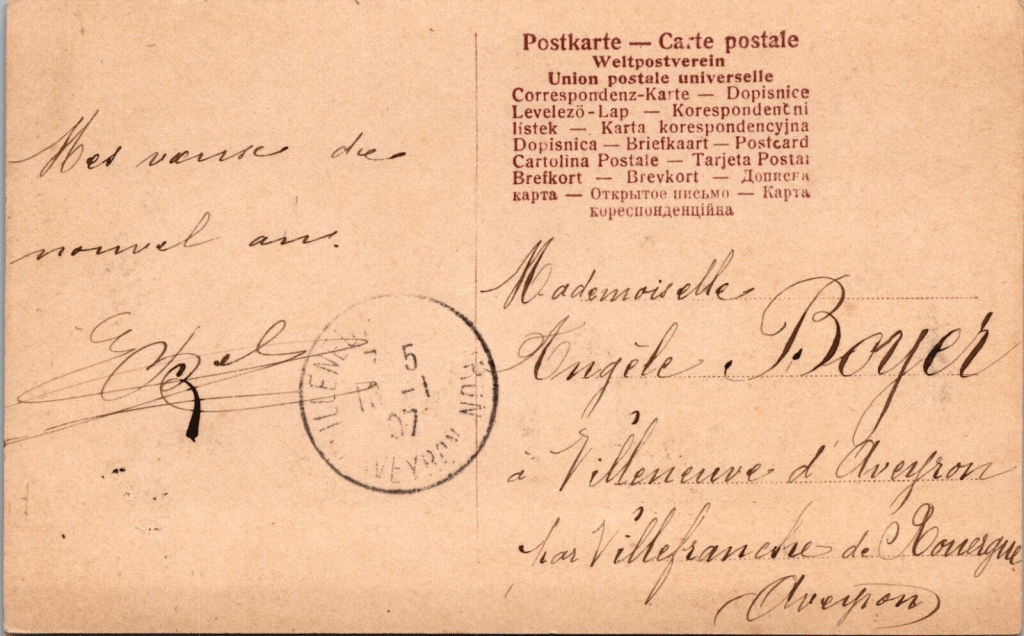 Postkarte — Carte postale
Weltpostverein
Union postale universelle
Correspondenz-Karte — Dopisnice
Levelező-Lap — Korespondentni
lístek — Karta korespondencyjna
Dopisnica — Briefkaart — Postcard
Cartolina Postale — Tarjeta Postal
Brefkort — Brevkort — Дописна
карта — Открытое письмо — Карта
кореспонденцiйка
Mes vœux de
nouvel an.
5
-1
07
VEYRON
Mademoiselle
Angèle Boyer
à Villeneuve d'Aveyron
par Villefranche de Rouergue
Aveyron